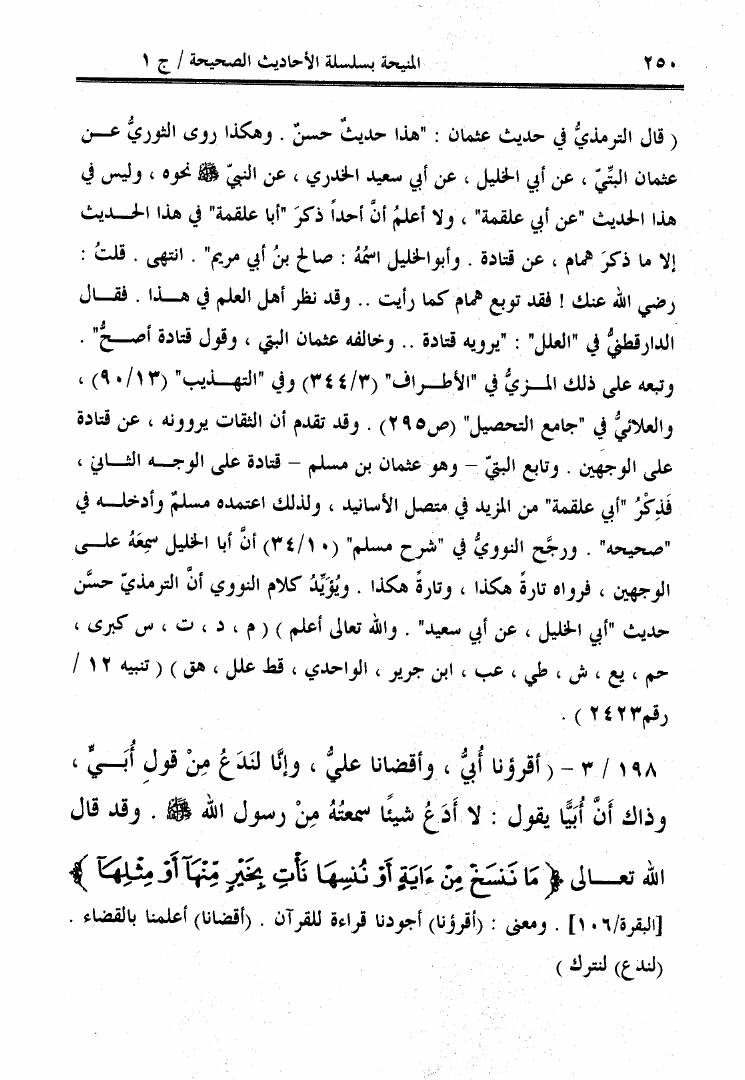 ٢٥٠ المنيحة بسلسلة الأحاديث الصحيحة / ج ١
( قال الترمذيُّ في حديث عثمان : "هذا حديثٌ حسنٌ . وهكذا روى الثوريُّ عـن
عثمان البتِّيّ ، عن أبي الخليل ، عن أبي سعيد الخدري ، عن النبيّ ﷺ نحوه ، وليس في
هذا الحديث "عن أبي علقمة" ، ولا أعلمُ أنَّ أحداً ذكرَ "أبا علقمة" في هذا الحـديث
إلا ما ذكرَ همام ، عن قتادة . وأبوالخليل اسمُهُ : صالح بنُ أبي مريم" . انتهى . قلتُ :
رضي الله عنك ! فقد توبع همام كما رأيت .. وقد نظر أهل العلم في هـذا . فقـال
الدارقطنيُّ في "العلل" : "يرويه قتادة .. وخالفه عثمان البتي ، وقول قتادة أصـحُّ" .
وتبعه على ذلك المـزيُّ في "الأطـراف" (٣٤٤/٣) وفي "التهـذيب" (٩٠/١٣) ،
والعلائيُّ في "جامع التحصيل" (ص٢٩٥) . وقد تقدم أن الثقات يروونه ، عن قتادة
على الوجهين . وتابع البتيّ – وهو عثمان بن مسلم – قتادة على الوجـه الثـاني ،
فَذِكْرُ "أبي علقمة" من المزيد في متصل الأسانيد ، ولذلك اعتمده مسلمٌ وأدخلـه في
"صحيحه" . ورجَّح النوويُّ في "شرح مسلم" (٣٤/١٠) أنَّ أبا الخليل سمِعَهُ علـى
الوجهين ، فرواه تارةً هكذا ، وتارةً هكذا . ويُؤَيِّدُ كلام النووي أنَّ الترمذيّ حسَّن
حديث "أبي الخليل ، عن أبي سعيد" . والله تعالى أعلم ) ( م ، د ، ت ، س كبرى ،
حم ، يع ، ش ، طي ، عب ، ابن جرير ، الواحدي ، قط علل ، هق ) ( تنبيه ١٢ /
رقم٢٤٢٣ ) .
١٩٨ / ٣ – ( أقرؤنا أُبيُّ ، وأقضانا عليُّ ، وإنَّا لنَدَعُ مِنْ قولِ أُبَـيٍّ ،
وذاك أنَّ أُبيًّا يقول : لا أَدَعُ شيئًا سمعتُهُ مِنْ رسول الله ﷺ . وقد قال
الله تعـالى ﴿ مَا نَنسَخْ مِنْ ءَايَةٍ أَوْ نُنسِهَا نَأْتِ بِخَيْرٍ مِّنْهَآ أَوْ مِثْلِهَآ ﴾
[البقرة/١٠٦] . ومعنى : (أقرؤنا) أجودنا قراءة للقرآن . (أقضانا) أعلمنا بالقضاء .
(لندع) لنترك )